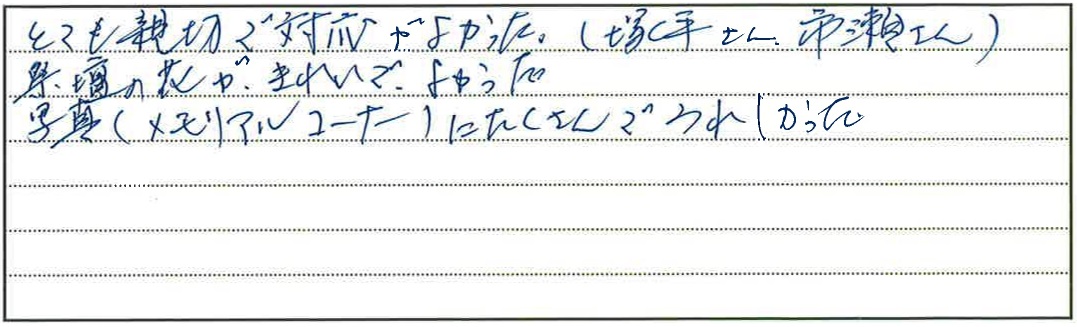 とても親切で対応がよかった。(塚平さん、市瀬さん)
祭壇の花が、きれいで、よかった
写真(メモリアルコーナー)にたくさんでうれしかった